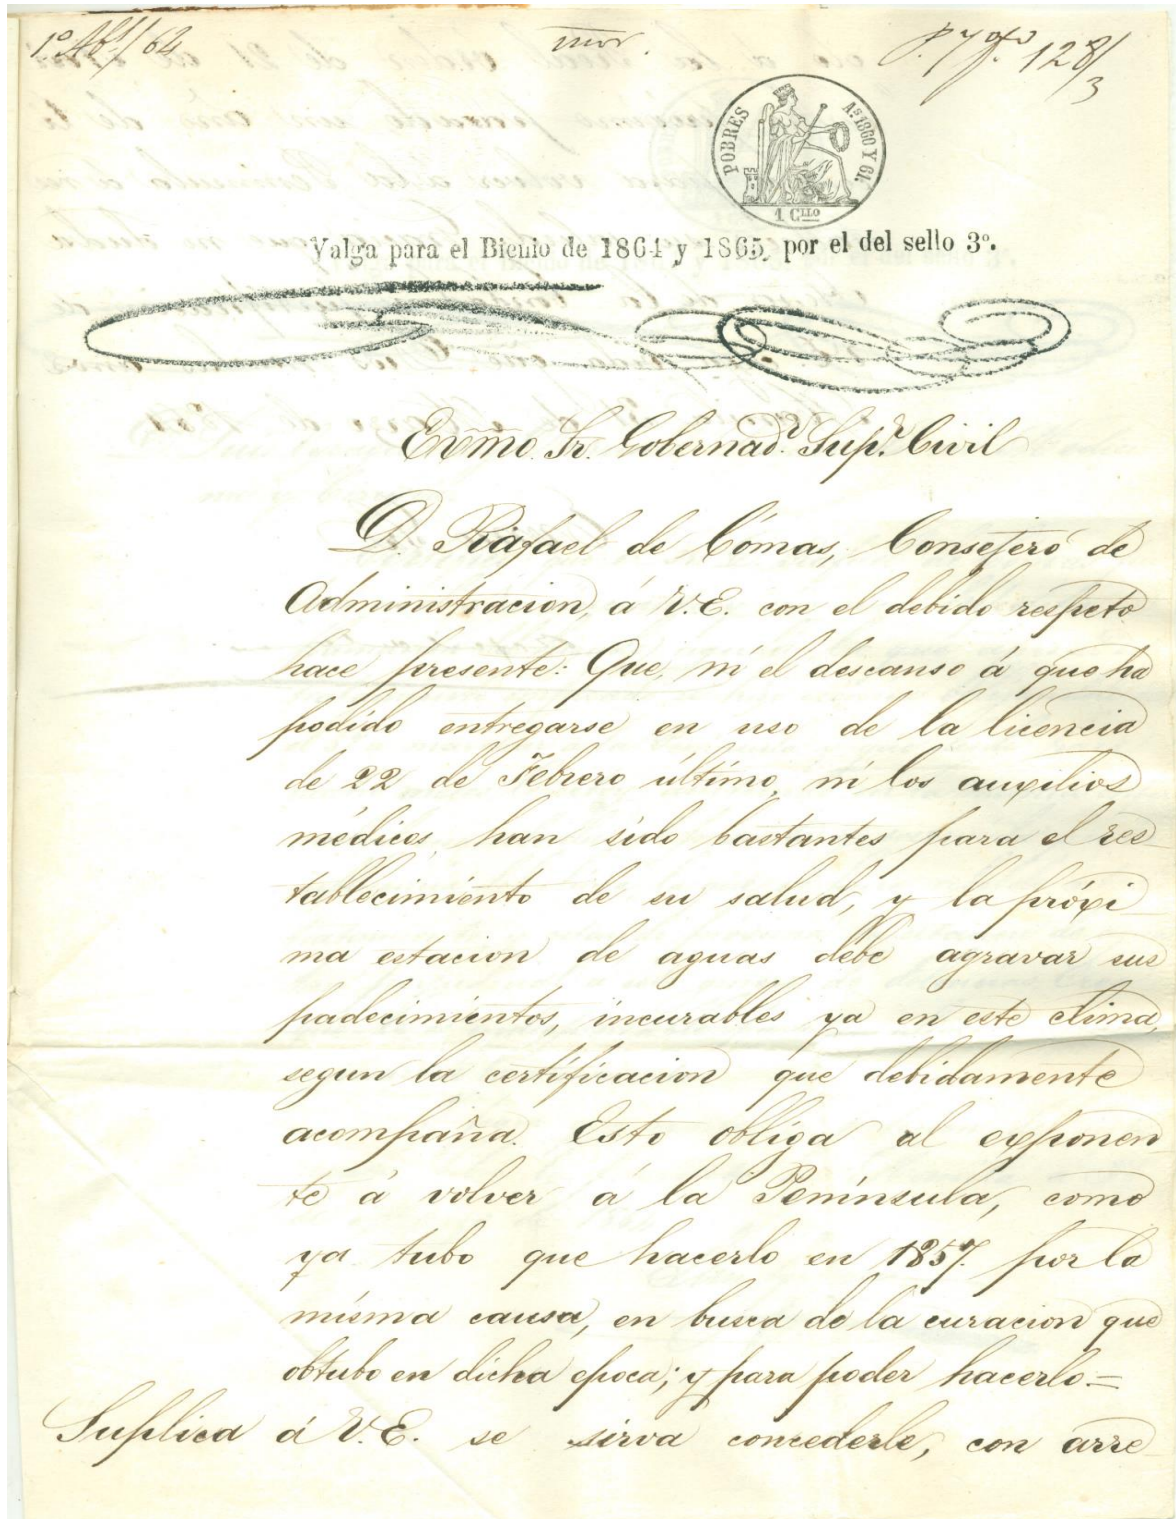 1º Ab.l/64
POBRES Aˢ 1860 Y 61.
1 Cˡˡº
Valga para el Bienio de 1864 y 1865, por el del sello 3º.
Exm̃o. Sr. Gobernad.r Sup.r Civil
D. Rafael de Cómas, Consejero de
Administracion, á V.E. con el debido respeto
hace presente: Que, ni el descanso á que ha
podido entregarse en uso de la licencia
de 22 de Febrero último, ni los auxilios
médicos, han sido bastantes para el res-
tablecimiento de su salud, y la próxi
ma estacion de aguas debe agravar sus
padecimientos, incurables ya en este clima,
segun la certificacion que debidamente
acompaña. Esto obliga al exponen
te á volver á la Península, como
ya tubo que hacerlo en 1857. por la
misma causa, en busca de la curacion que
obtubo en dicha epoca; y para poder hacerlo=
Suplica á V.E. se sirva concederle, con arre-